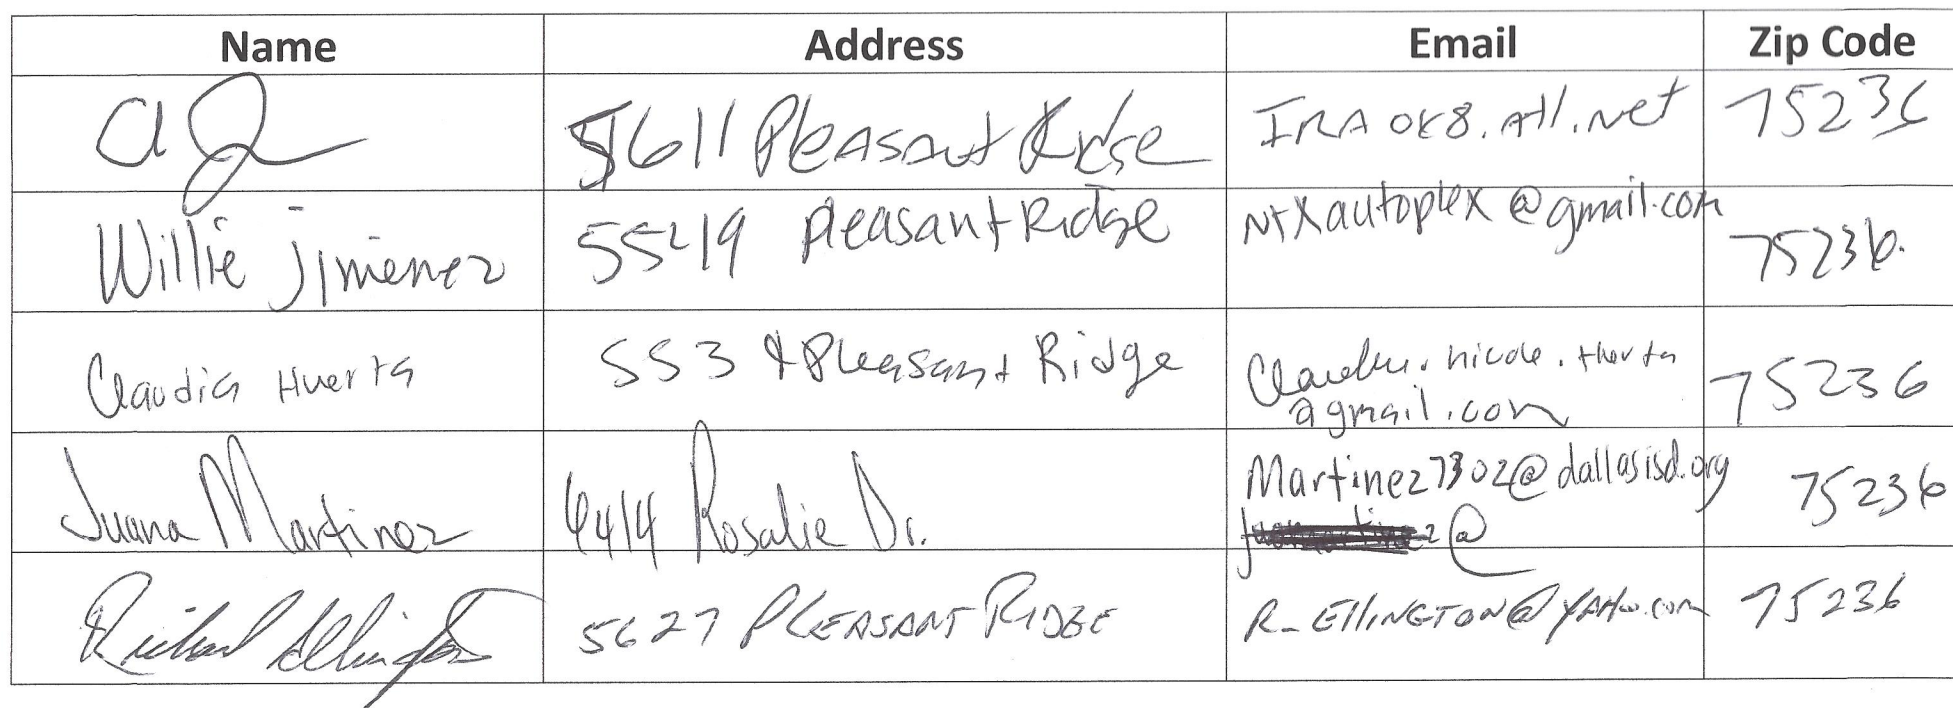 Name Address Email Zip Code
5611 Pleasant Ridge IRA0K8.att.net 75236
Willie Jimenez 5519 Pleasant Ridge NTXautoplex@gmail.com 75236.
Claudia Huerta 553 Pleasant Ridge nicole. 75236
@gmail.com
Juana Martinez 4414 Rosalie Dr. Martinez7302@dallasisd.org 75236
@
Richard Ellington 5627 PLEASANT RIDGE R_ELLINGTON@YAHOO.com 75236